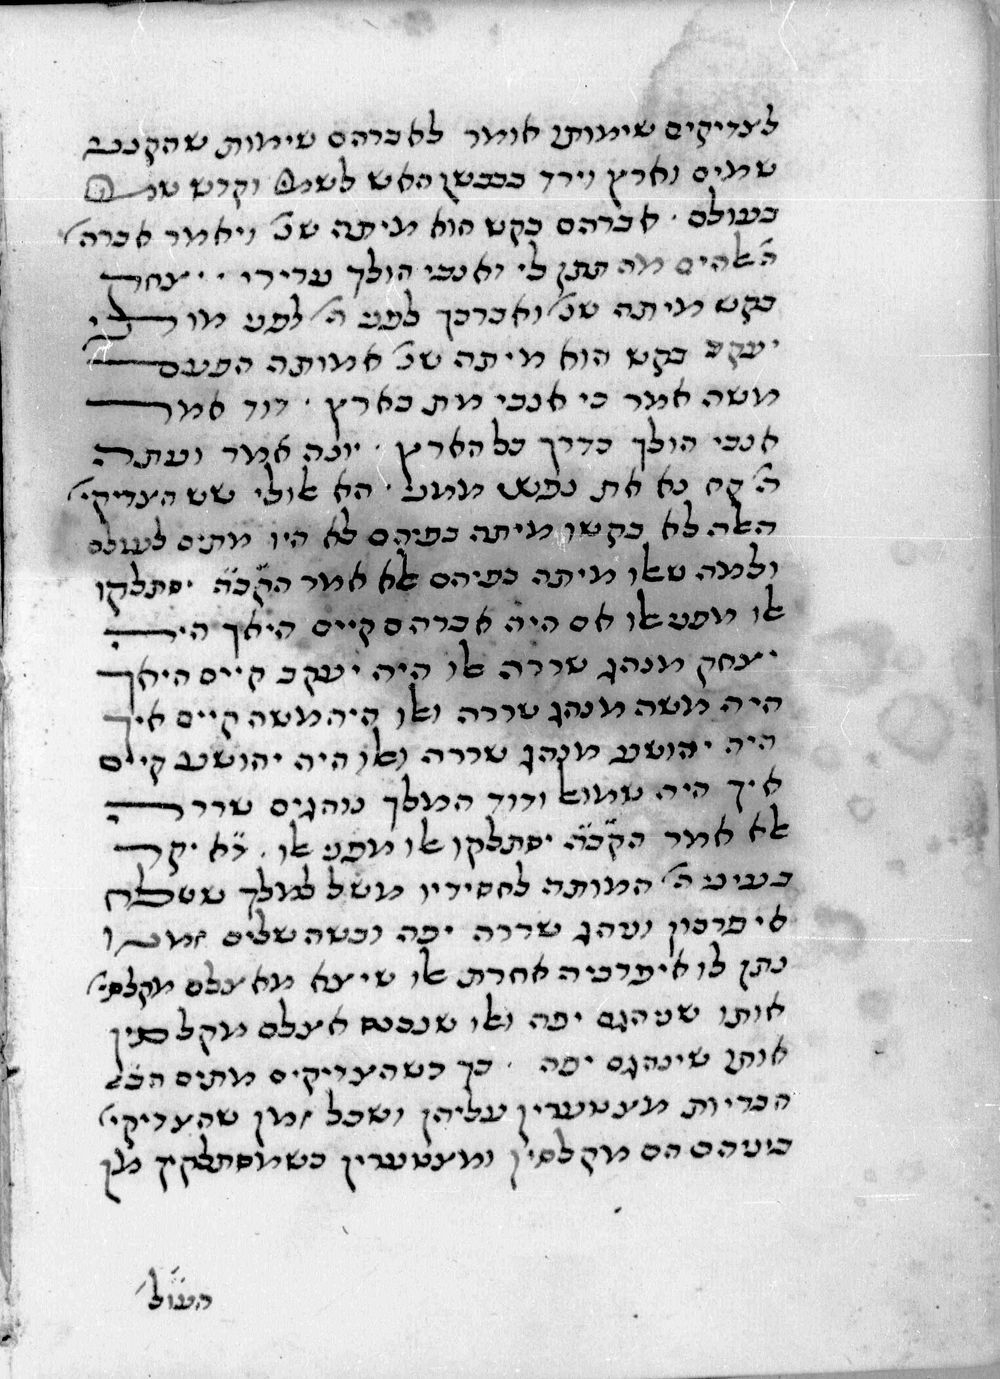 לצדיקים שימותו אומר לאברהם שימות שהקנני
שמים וארץ וירד בכבשן האש לשמו וקדש שמו
בעולם · אברהם בקש הוא מיתה שנ' ויאמר אברה'
ה' אלהים מה תתן לי ואנכי הולך ערירי · יצחק
בקש מיתה שנ' ואברכך לפני ה' לפני מותי
יעקב בקש הוא מיתה שנ' אמותה הפעם
משה אמר כי אנכי מת בארץ · דוד אמר
אנכי הולך בדרך כל הארץ · יונה אמר ועתה
ה' קח נא את נפשי ממני · הא אולי שש הצדיקי'
האלה לא בקשו מיתה בפיהם לא היו מתים לעולם
ולמה שאלו מיתה בפיהם אלא אמר הקב"ה יסתלקו
אלו מפני אלו אם היה אברהם קיים היאך היה
יצחק מנהג שררה אלו היה יעקב קיים היאך
היה משה מנהג שררה ואלו היה משה קיים איך
היה יהושע מנהג שררה ואלו היה יהושע קיים
איך היה שמואל ודוד המלך נוהגים שררה
אלא אמר הקב"ה יסתלקו אלו מפני אלו · ד"א יקר
בעיני ה' המותה לחסידיו משל למלך ששלח
איפרכון ונהג שררה יפה וכשהשלים זמנו
נתן לו איפרכיה אחרת אלו שיצא מאצלם מקלסי'
אותו שנהגם יפה ואלו שנכנס אצלם מקלסין
אותו שינהגם יפה · כך כשהצדיקים מתים הכל
הבריות מצטערין עליהן ושכל זמן שהצדיקי'
ביניהם הם מקלסין ומצטערין כשמסתלקין מן
העול'